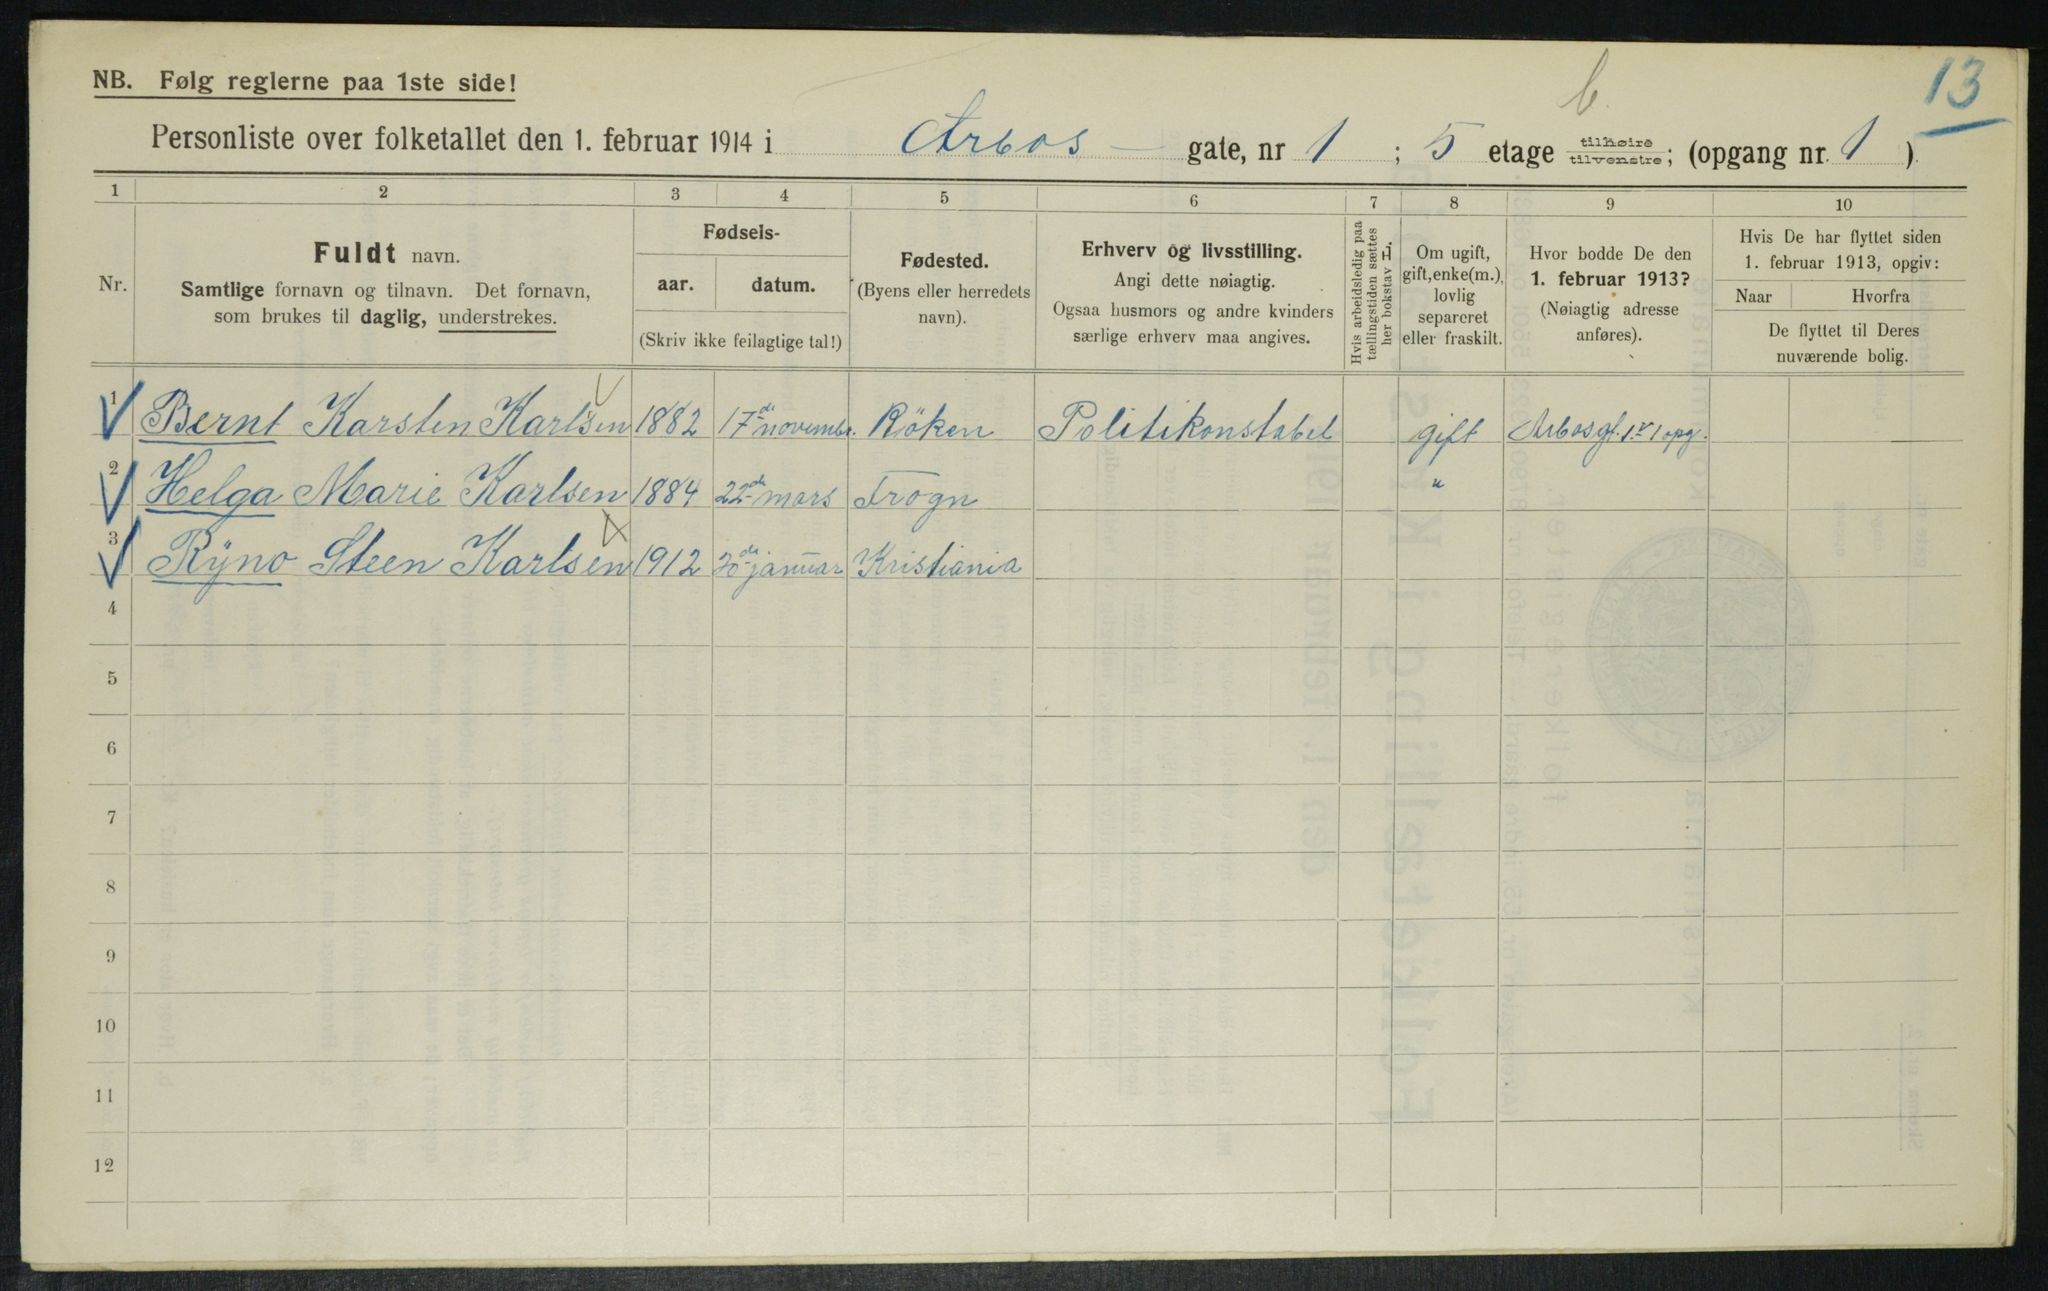 b.
13
NB. Følg reglerne paa 1ste side!
Personliste over folketallet den 1. februar 1914 i Arbos — gate, nr 1 ; 5 etage tilhøire tilvenstre; (opgang nr. 1 )
1 2 3 4 5 6 7 8 9 10
Nr.
Fuldt navn.
Samtlige fornavn og tilnavn. Det fornavn,
som brukes til daglig, understrekes.
Fødsels-
aar. datum.
(Skriv ikke feilagtige tal!)
Fødested.
(Byens eller herredets
navn).
Erhverv og livsstilling.
Angi dette nøiagtig.
Ogsaa husmors og andre kvinders
særlige erhverv maa angives.
Hvis arbeidsledig paa
tællingstiden sættes
her bokstav L.
Om ugift,
gift, enke(m.),
lovlig
separeret
eller fraskilt.
Hvor bodde De den
1. februar 1913?
(Nøiagtig adresse
anføres).
Hvis De har flyttet siden
1. februar 1913, opgiv:
Naar Hvorfra
De flyttet til Deres
nuværende bolig.
1 Bernt Karsten Karlsen 1882 17de novembr. Röken Politikonstabel gift Arbosgt. 1 1 opg.
2 Helga Marie Karlsen 1884 22de mars Frogn "
3 Rÿno Steen Karlsen 1912 20de januar Kristiania
4
5
6
7
8
9
10
11
12